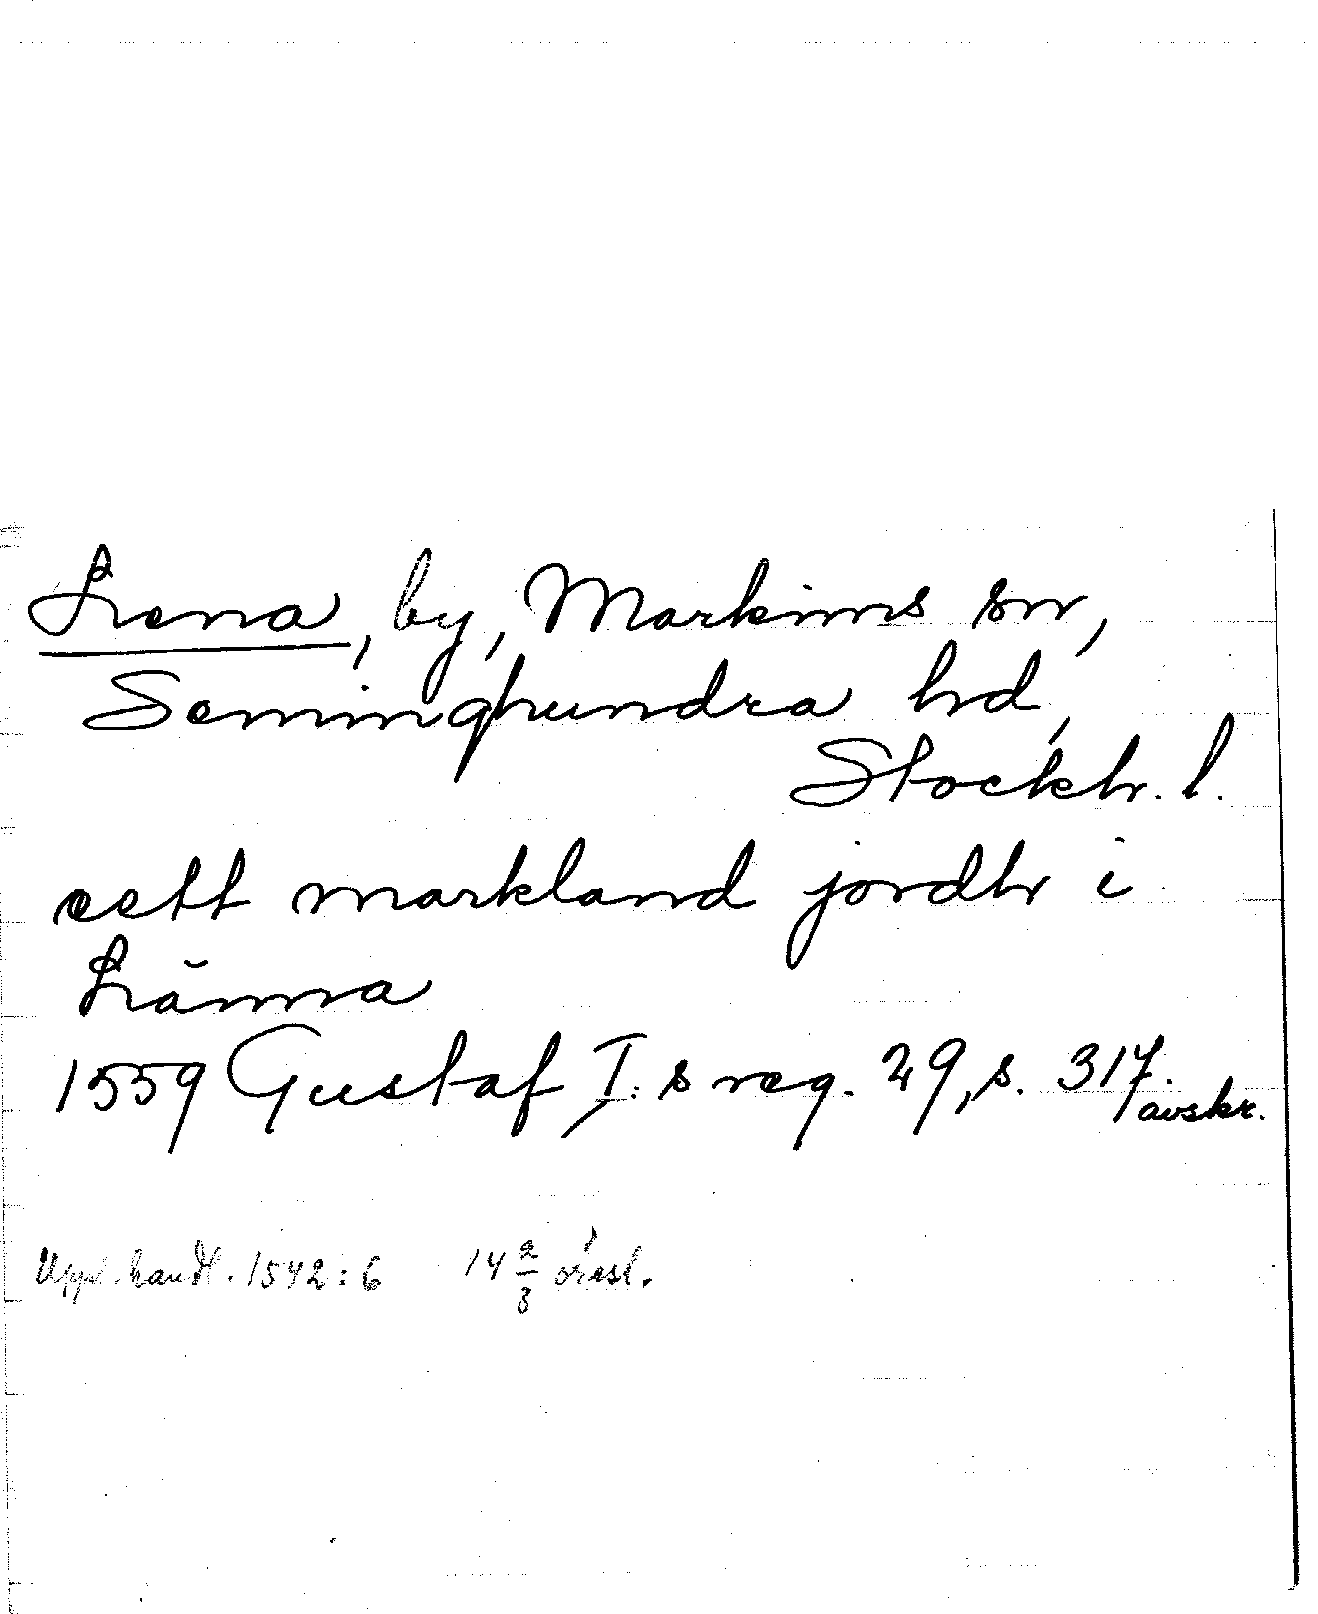 Lena, by, Markims sn,
Seminghundra hd,
Stockh. l.
eett markland jordh i
Länna
1559 Gustaf I:s reg. 29, s. 317.
avskr.
Uppl. handl. 1542:6 14 2/3 öresl.